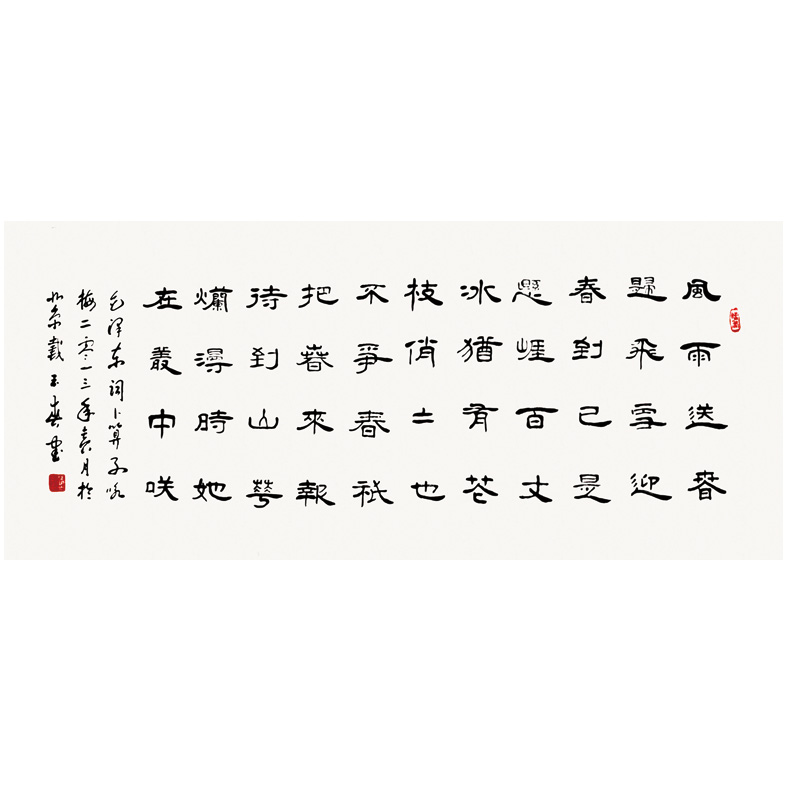 風雨送春
歸飛雪迎
春到已是
懸崖百丈
冰猶有花
枝俏二也
不爭春祇
把春來報
待到山華
爛漫時她
在叢中咲
毛泽东词卜算子咏
梅二零一三年月於
北京戴玉書